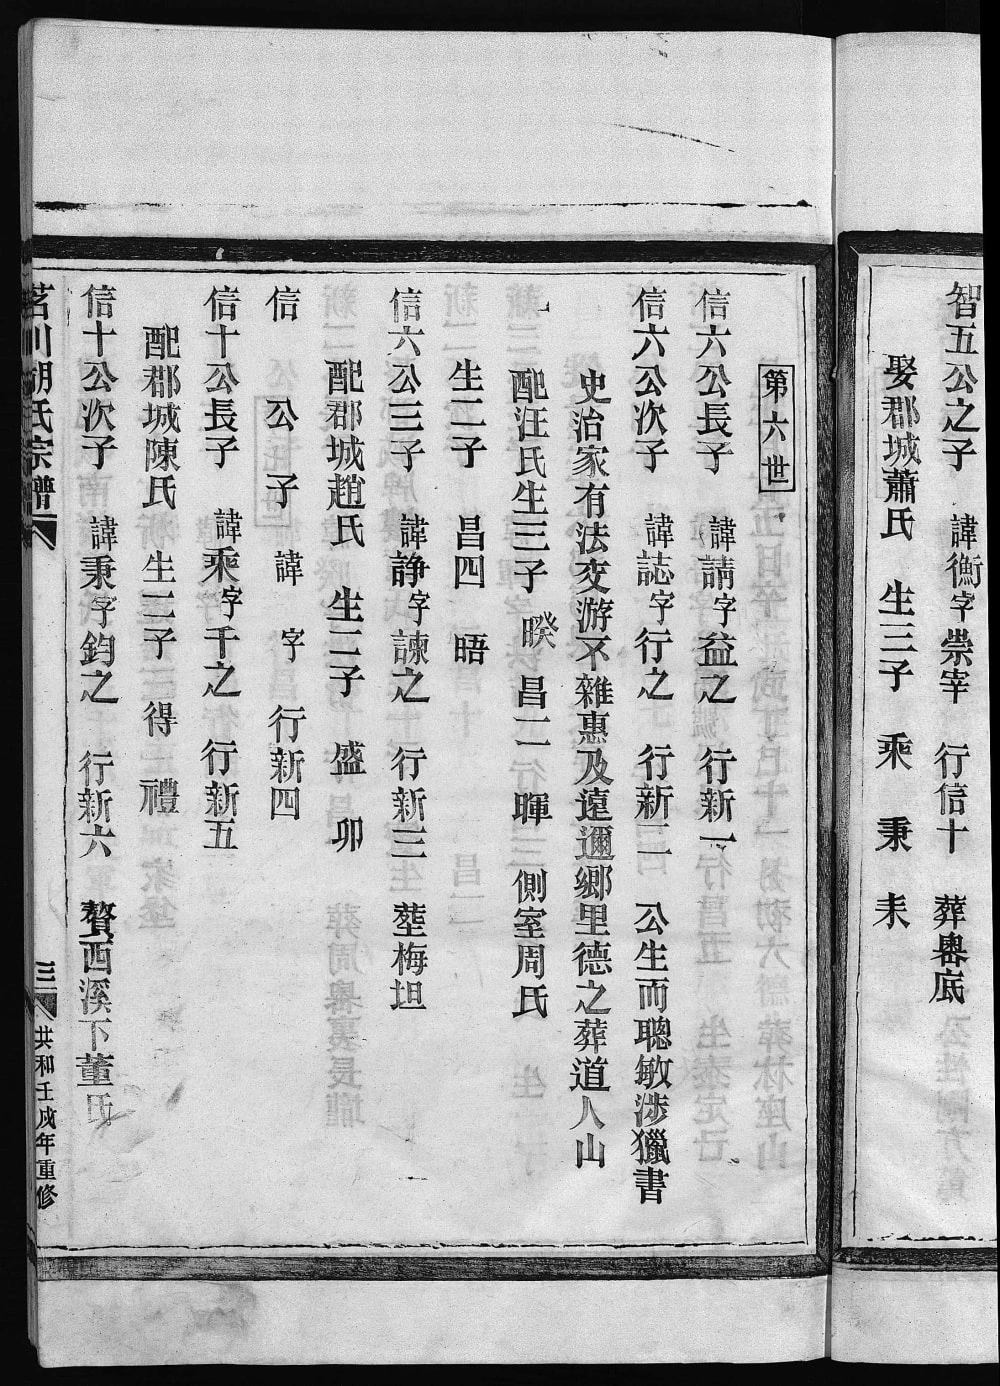 智五公之子 諱衡字崇宰 行信十 葬磡底
娶郡城蕭氏 生三子 乘 秉 耒
第六世
信六公長子 諱請字益之 行新一
信六公次子 諱誌字行之 行新二 公生而聰敏涉獵書
史治家有法交游不雜惠及遠邇鄉里德之葬道人山
配汪氏生三子 暌 昌二 暉 側室周氏
生二子 昌四 晤
信六公三子 諱諍字諫之 行新三 塟梅坦
配郡城趙氏 生二子 盛 卯
信 公 子 諱 字 行新四
信十公長子 諱乘字千之 行新五
配郡城陳氏 生二子 得 禮
信十公次子 諱秉字鈞之 行新六 贅西溪下董氏
茗川胡氏宗譜
三
共和壬戌年重修